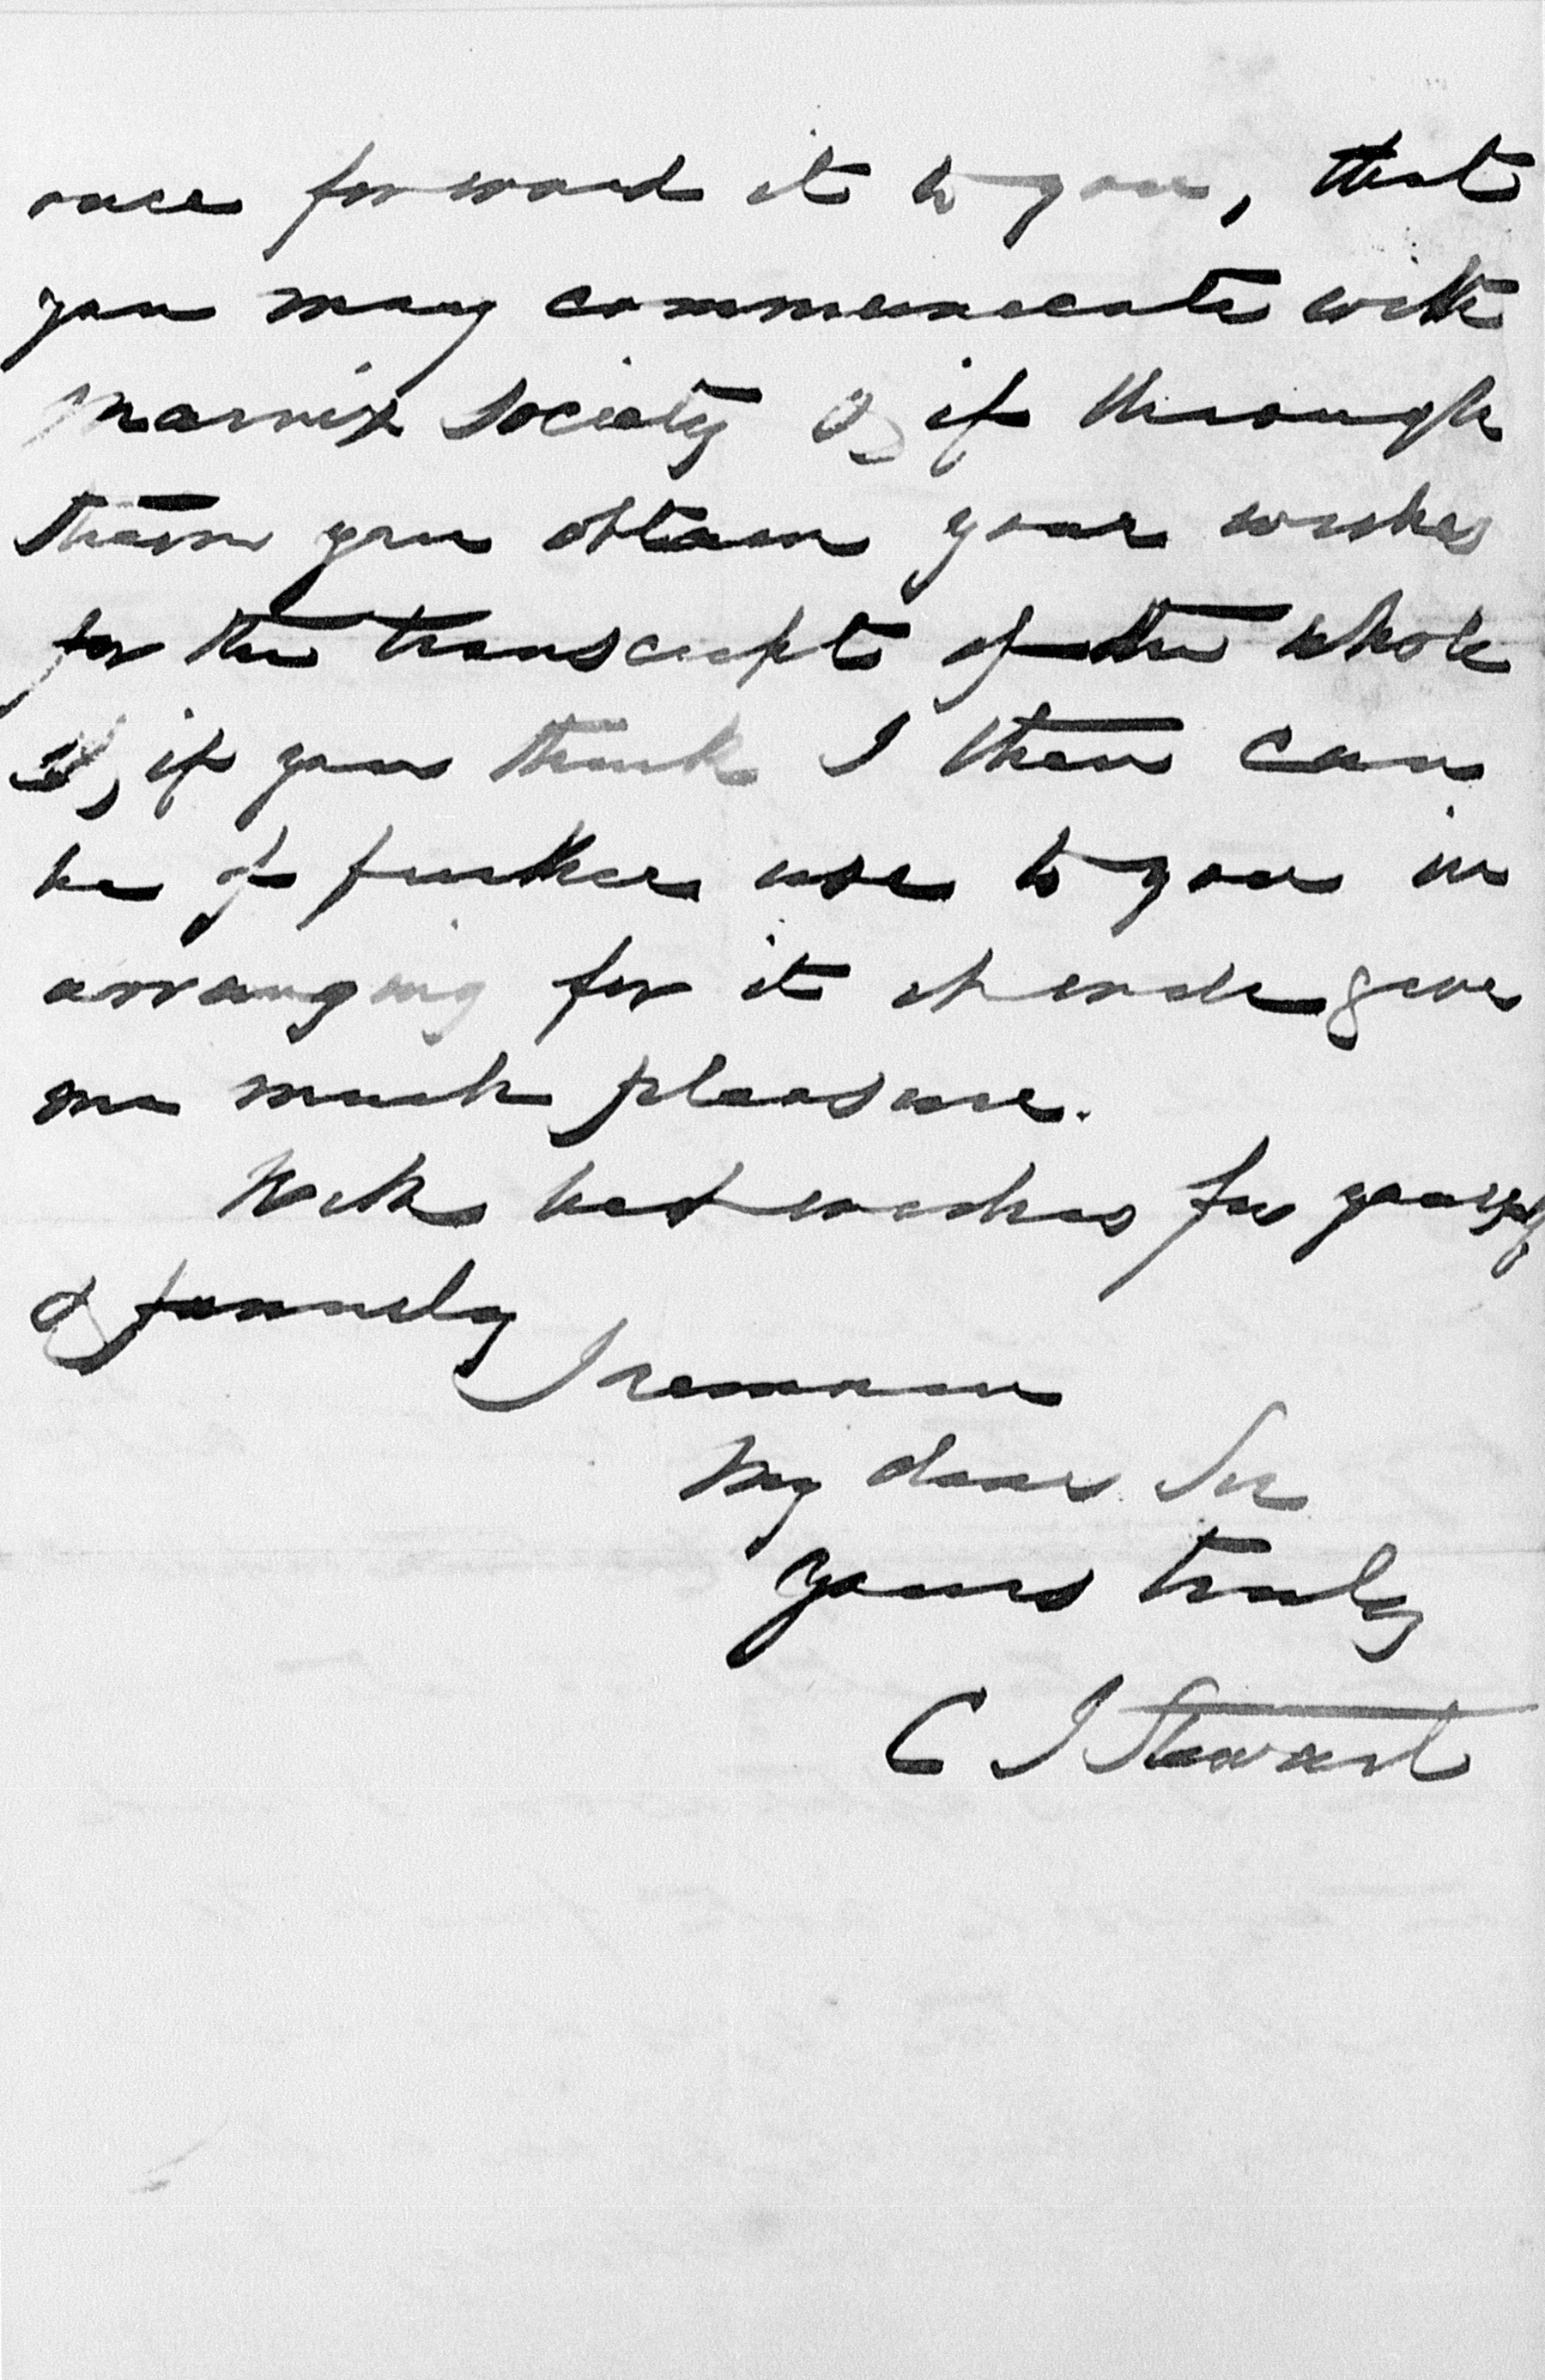 once forward it to you, that
you may communicate with
Marnix Society & if through
them you obtain your wishes
for the transcript of the whole
&, if you think I then can
be of further use to you in
arranging for it it will give
me much pleasure.
With best wishes for yourself
& family
I remain
My dear Sir
Yours truly
C J Stewart